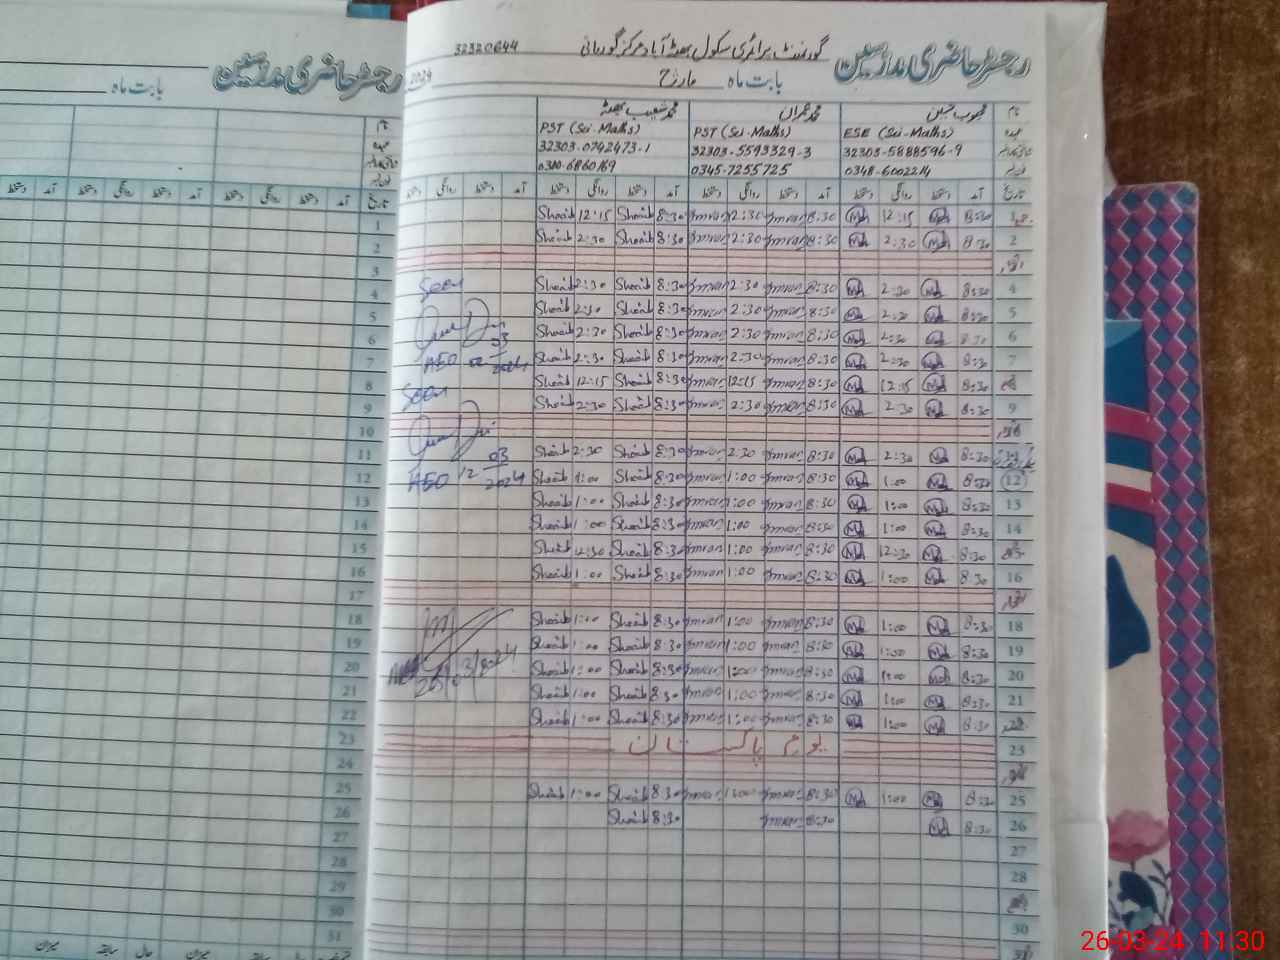 رجسٹر حاضری مدرسین گورنمنٹ پرائمری سکول بھٹہ آباد مرکز گورمانی 32320644
بابت ماہ مارچ 2024
نام محبوب حسین محمد عمران محمد شعیب بھٹہ
عہدہ ESE (Sci-Maths) PST (Sci-Maths) PST (Sci-Maths)
32303-5888596-9 32303-5593329-3 32303-0742473-1
0348-6002214 0345-7255725 0310-6860169
تاریخ آمد دستخط روانگی دستخط آمد دستخط روانگی دستخط آمد دستخط روانگی دستخط
1 8:30 12:15 8:30 Imran 12:30 Imran 8:30 Shoaib 12:15 Shoaib
2 8:30 2:30 8:30 Imran 2:30 Imran 8:30 Shoaib 2:30 Shoaib
اتوار
4 8:30 2:30 8:30 Imran 2:30 Imran 8:30 Shoaib 2:30 Shoaib Seen
5 8:30 2:30 8:30 Imran 2:30 Imran 8:30 Shoaib 2:30 Shoaib
6 8:30 2:30 8:30 Imran 2:30 Imran 8:30 Shoaib 2:30 Shoaib
7 8:30 2:30 8:30 Imran 2:30 Imran 8:30 Shoaib 2:30 Shoaib AEO 03 2024
8:30 12:15 8:30 Imran 12:15 Imran 8:30 Shoaib 12:15 Shoaib Seen
9 8:30 2:30 8:30 Imran 2:30 Imran 8:30 Shoaib 2:30 Shoaib
اتوار
8:30 2:30 8:30 Imran 2:30 Imran 8:30 Shoaib 2:30 Shoaib
12 8:30 1:00 8:30 Imran 1:00 Imran 8:30 Shoaib 1:00 Shoaib AEO 12 03 2024
13 8:30 1:00 8:30 Imran 1:00 Imran 8:30 Shoaib 1:00 Shoaib
14 8:30 1:00 8:30 Imran 1:00 Imran 8:30 Shoaib 1:00 Shoaib
8:30 12:30 8:30 Imran 1:00 Imran 8:30 Shoaib 12:30 Shoaib
16 8:30 1:00 8:30 Imran 1:00 Imran 8:30 Shoaib 1:00 Shoaib
اتوار
18 8:30 1:00 8:30 Imran 1:00 Imran 8:30 Shoaib 1:00 Shoaib
19 8:30 1:00 8:30 Imran 1:00 Imran 8:30 Shoaib 1:00 Shoaib
20 8:30 1:00 8:30 Imran 1:00 Imran 8:30 Shoaib 1:00 Shoaib
21 8:30 1:00 8:30 Imran 1:00 Imran 8:30 Shoaib 1:00 Shoaib
22 8:30 1:00 8:30 Imran 1:00 Imran 8:30 Shoaib 1:00 Shoaib
23 یوم پاکستان
اتوار
25 8:30 1:00 8:30 Imran 1:00 Imran 8:30 Shoaib 1:00 Shoaib
26 8:30 8:30 Imran 8:30 Shoaib
27
28
30
رجسٹر حاضری مدرسین
بابت ماہ
نام
عہدہ
تاریخ آمد دستخط روانگی دستخط آمد دستخط روانگی دستخط آمد
1
2
3
4
5
6
7
8
9
10
11
12
13
14
15
16
17
18
19
20
21
22
23
24
25
26
27
28
29
30
31
سابقہ میزان حال سابقہ میزان
26-03-24 11:30